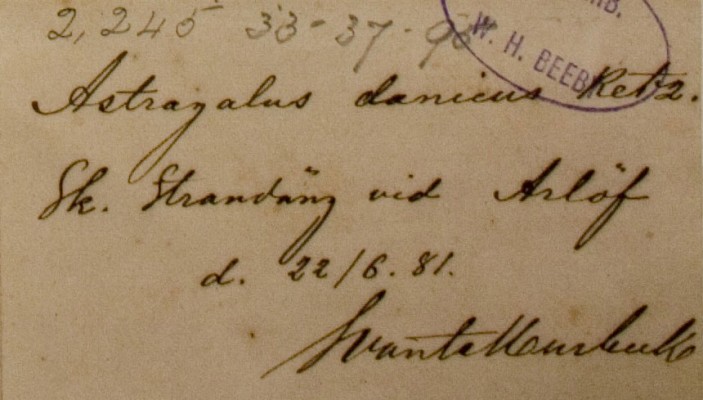 2,245 33-37-96
RB.
W. H. BEEB
Astragalus danicus Retz.
Sk. Strandäng vid Arlöf
d. 22/6. 81.
Svante Murbeck